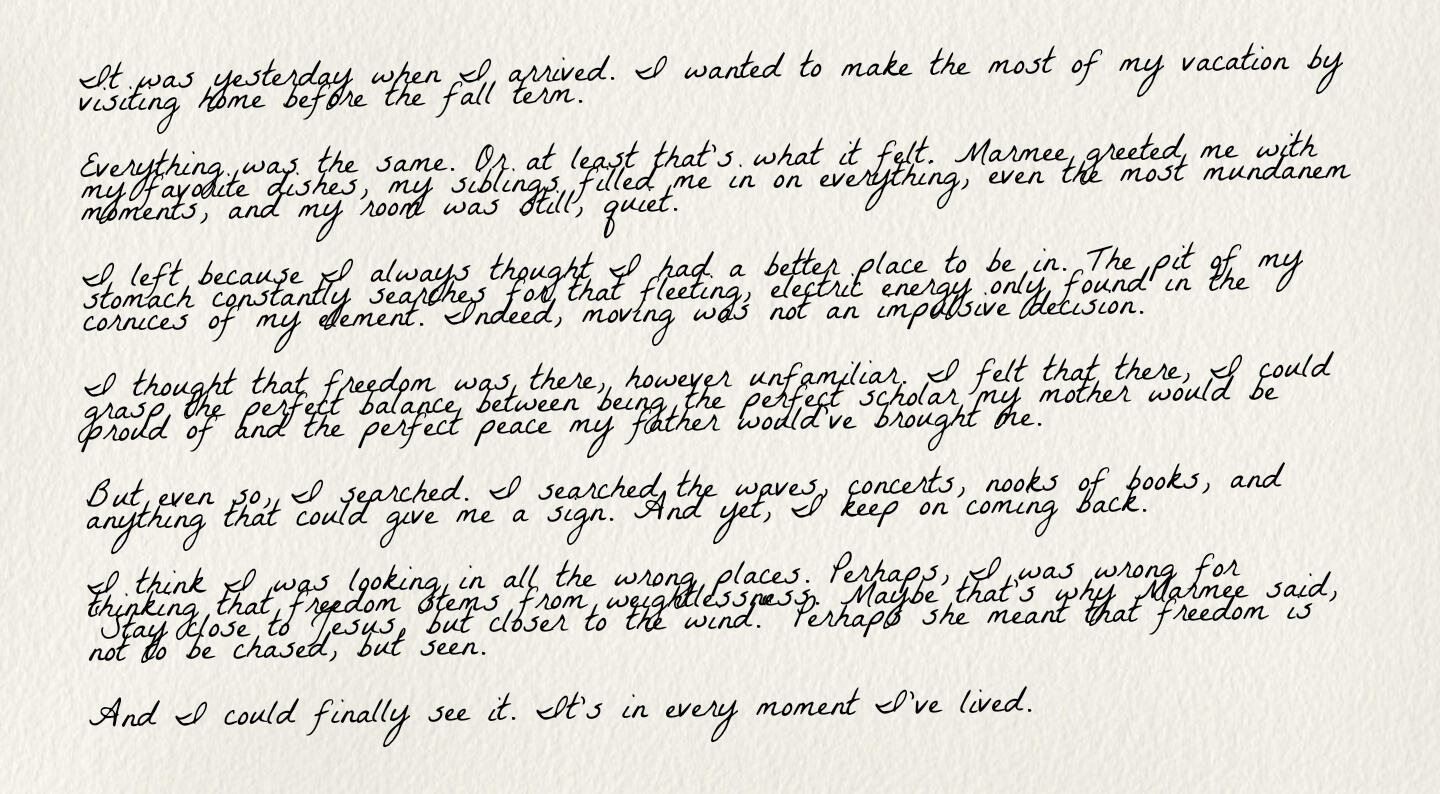 It was yesterday when I arrived. I wanted to make the most of my vacation by
visiting home before the fall term.
Everything was the same. Or at least that's what it felt. Marmee greeted me with
my favorite dishes, my siblings filled me in on everything, even the most mundanem
moments, and my room was still, quiet.
I left because I always thought I had a better place to be in. The pit of my
stomach constantly searches for that fleeting, electric energy only found in the
cornices of my element. Indeed, moving was not an impulsive decision.
I thought that freedom was there, however unfamiliar. I felt that there, I could
grasp the perfect balance between being the perfect scholar my mother would be
proud of and the perfect peace my father would've brought me.
But even so, I searched. I searched the waves, concerts, nooks of books, and
anything that could give me a sign. And yet, I keep on coming back.
I think I was looking in all the wrong places. Perhaps, I was wrong for
thinking that freedom stems from weightlessness. Maybe that's why Marmee said,
Stay close to Jesus, but closer to the wind. Perhaps she meant that freedom is
not to be chased, but seen.
And I could finally see it. It's in every moment I've lived.